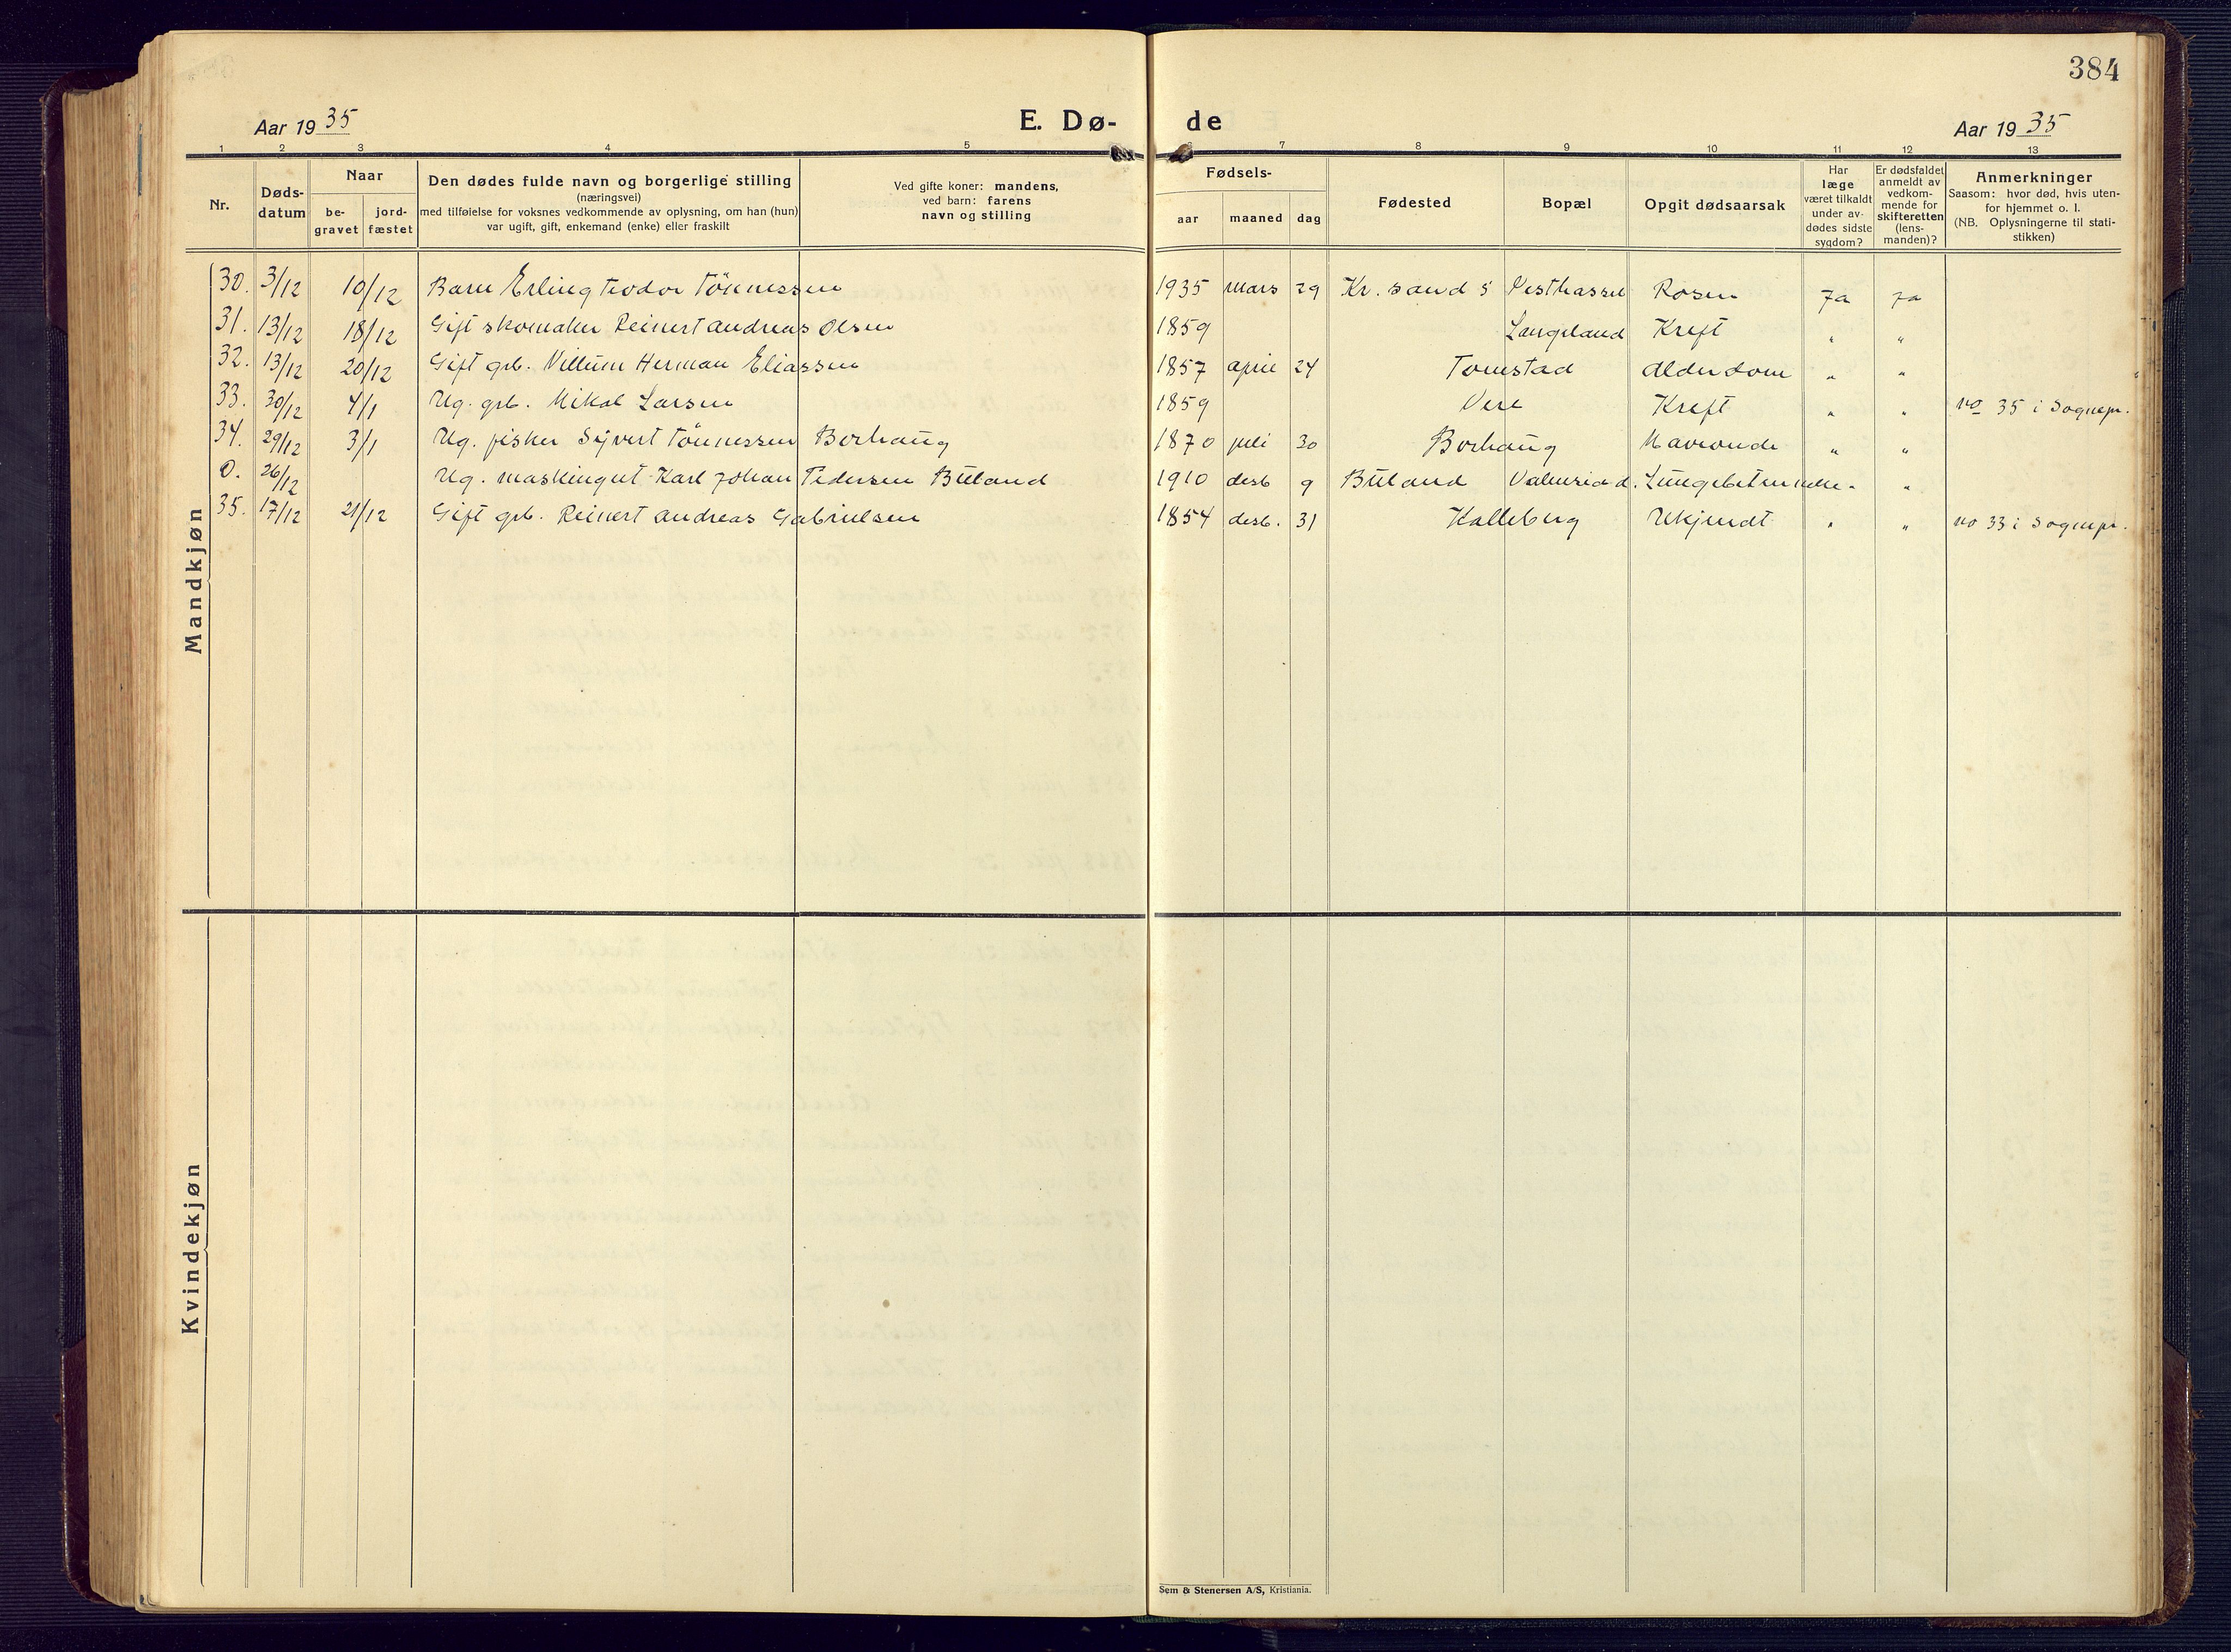 384
Aar 1935
E. Dø-
de
Aar 1935
1 2 3 4 5 6 7 8 9 10 11 12 13
Nr.
Døds-
datum
Naar
be-
gravet
jord-
fæstet
Den dødes fulde navn og borgerlige stilling
(næringsvei)
med tilføielse for voksnes vedkommende av oplysning, om han (hun)
var ugift, gift, enkemand (enke) eller fraskilt
Ved gifte koner: mandens,
ved barn: farens
navn og stilling
Fødsels-
aar maaned dag
Fødested
Bopæl
Opgit dødsaarsak
Har
læge
været tilkaldt
under av-
dødes sidste
sygdom?
Er dødsfaldet
anmeldt av
vedkom-
mende for
skifteretten
(lens-
manden)?
Anmerkninger
Saasom: hvor død, hvis uten-
for hjemmet o. l.
(NB. Oplysningerne til stati-
stikken)
Mandkjøn
30. 3/12 10/12 Barn Erling Teodor Tönnessen 1935 mars 29 Kr.sand S Vesthassel Rosen Ja Ja
31. 13/12 18/12 Gift skomaker Reinert Andreas Olsen 1859 Langeland Kreft " "
32. 13/12 20/12 Gift grb. Villum Herman Eliassen 1857 april 24 Tomstad Alderdom " "
33. 30/12 4/1 Ug. grb. Mikal Larsen 1859 Vere Kreft " " no 35 i Sognepr.
34. 29/12 3/1 Ug. fisker Sijvert Tönnessen Borhaug 1870 juli 30 Borhaug " "
0. 26/12 Ug. maskingut Karl Johan Pedersen Buland 1910 desb 9 Buland " "
35. 17/12 21/12 Gift grb. Reinert Andreas Gabrielsen 1854 desb. 31 Kalleberg Ukjendt " " no 33 i Sognepr.
Kvindekjøn
Sem & Stenersen A/S, Kristiania.